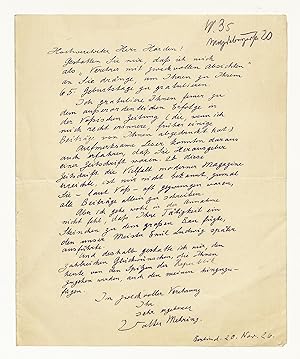 W 35
Magdeburgerstr. 20
Hochverehrter Herr Harden!
Gestatten Sie mir, daß ich mich
als „Verehrer mit zweckvollen Absichten“
an Sie dränge, um Ihnen zu Ihrem
65. Geburtstage zu gratulieren.
Ich gratuliere Ihnen ferner zu
dem außerordentlichen Erfolge in
der Vossischen Zeitung (die, wenn ich
mich recht erinnere, früher einige
Beiträge von Ihnen abgedruckt hat)
Aufmerksame Leser konnten daraus
auch erfahren, daß Sie Herausgeber
einer Zeitschrift waren. Ob diese
Zeitschrift die Vielfalt moderner Magazine
erreichte, ist mir nicht bekannt, zumal
Sie - laut Voss - oft gezwungen waren,
alle Beiträge allein zu schreiben.
Aber ich gehe wohl in der Annahme
nicht fehl, daß Ihre Tätigkeit ein
Steinchen zu dem großen Bau fügte,
den unser Meister Emil Ludwig später
ausführte.
Und deshalb gestatte ich mir, den
zahlreichen Glückwünschen, die Ihnen
heute von den Spitzen der Republik
zugehen werden, auch den meinen hinzuzu-
fügen.
In zweckvoller Verehrung
Ihr
sehr ergebener
Walter Mehring.
Berlin d. 20. Nov. 26.